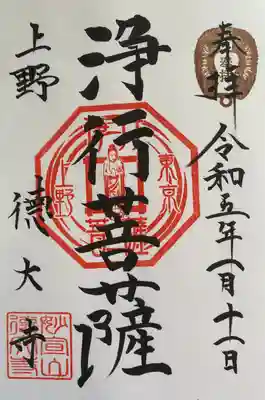 奉拝
令和五年一月十一日
浄行菩薩
東京
上野
上野
徳大寺
妙宣山
徳大寺